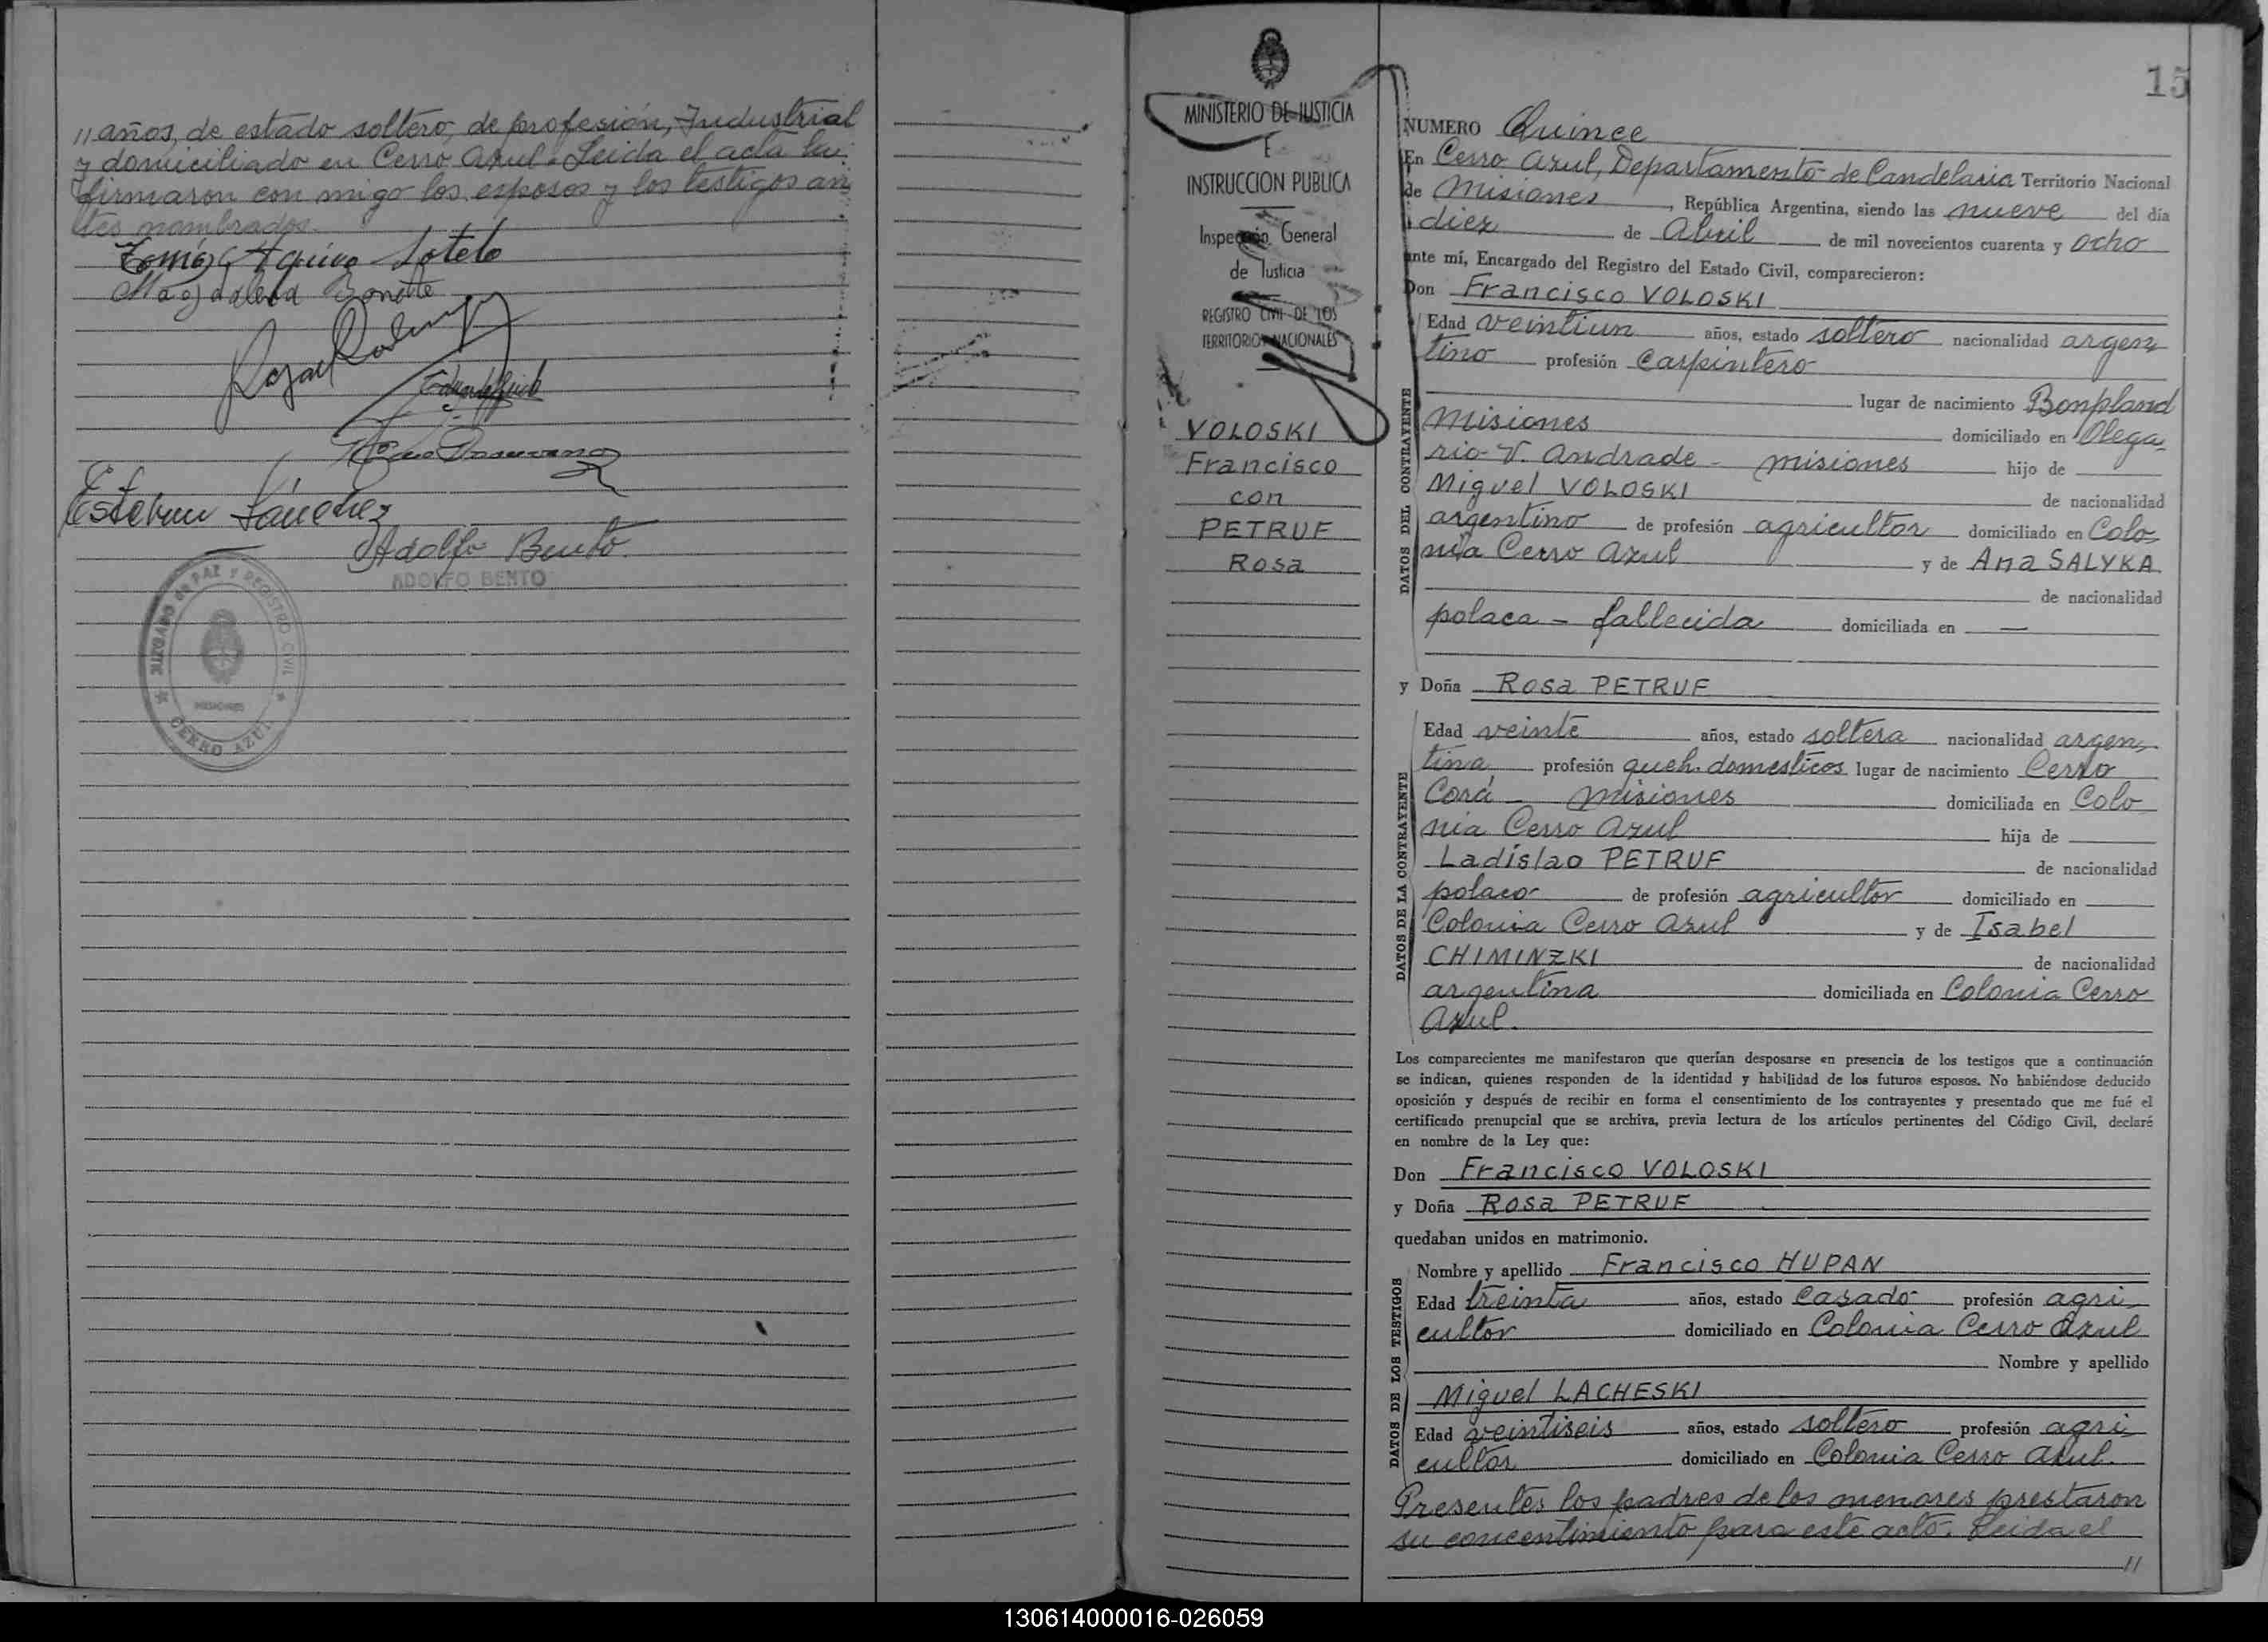 "años, de estado soltero, de profesión, Industrial
y domiciliado en Cerro Azul. Leida el acta la
firmaron con migo los esposos y los testigos an
tes nombrados.
Tomás Aquino Sotelo
Magdalena
Esteban Sánchez
Adolfo Bento
ADOLFO BENTO
JUZGADO de PAZ Y REGISTRO CIVIL
MISIONES
CERRO AZUL
MINISTERIO DE JUSTICIA
E
INSTRUCCION PUBLICA
Inspección General
de Justicia
REGISTRO CIVIL DE LOS
TERRITORIOS NACIONALES
VOLOSKI
Francisco
con
PETRUF
Rosa
15
NUMERO Quince
En Cerro Azul, Departamento de Candelaria Territorio Nacional
de Misiones, República Argentina, siendo las nueve del día
diez de Abril de mil novecientos cuarenta y ocho
ante mí, Encargado del Registro del Estado Civil, comparecieron:
Don Francisco VOLOSKI
DATOS DEL CONTRAYENTE
Edad veintiun años, estado soltero nacionalidad argen
tino profesión Carpintero
lugar de nacimiento Bonpland
Misiones domiciliado en Olega
rio V. Andrade - Misiones hijo de
Miguel VOLOSKI de nacionalidad
argentino de profesión agricultor domiciliado en Colo
nia Cerro Azul y de Ana SALYKA
de nacionalidad
polaca - fallecida domiciliada en —
y Doña Rosa PETRUF
DATOS DE LA CONTRAYENTE
Edad veinte años, estado soltera nacionalidad argen
tina profesión queh. domesticos lugar de nacimiento Cerro
Corá - Misiones domiciliada en Colo
nia Cerro Azul hija de
Ladislao PETRUF de nacionalidad
polaco de profesión agricultor domiciliado en
Colonia Cerro Azul y de Isabel
CHIMINZKI de nacionalidad
argentina domiciliada en Colonia Cerro
Azul.
Los comparecientes me manifestaron que querían desposarse en presencia de los testigos que a continuación
se indican, quienes responden de la identidad y habilidad de los futuros esposos. No habiéndose deducido
oposición y después de recibir en forma el consentimiento de los contrayentes y presentado que me fué el
certificado prenupcial que se archiva, previa lectura de los artículos pertinentes del Código Civil, declaré
en nombre de la Ley que:
Don Francisco VOLOSKI
y Doña Rosa PETRUF
quedaban unidos en matrimonio.
DATOS DE LOS TESTIGOS
Nombre y apellido Francisco HUPAN
Edad treinta años, estado Casado profesión agri
cultor domiciliado en Colonia Cerro Azul
Nombre y apellido
Miguel LACHESKI
Edad veintiseis años, estado soltero profesión agri
cultor domiciliado en Colonia Cerro Azul.
Presentes los padres de los menores prestaron
su concentimiento para este acto. Leida el
"
130614000016-026059